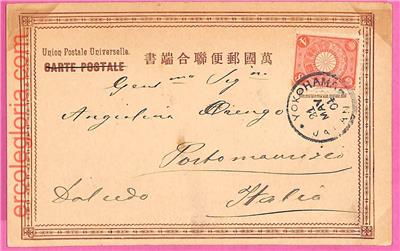 ercolegloria.com
Union Postale Universelle.
書端合聯便郵國萬
CARTE POSTALE
Gent.ma Sig.na
Angiolina Orengo
Portomaurizio
Italia
YOKOHAMA
21
MAY